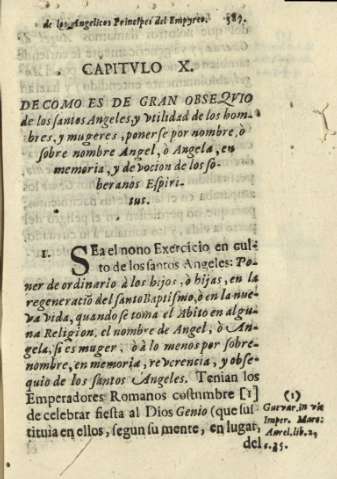 de los Angelicos Principes del Empyreo. 589.
CAPITVLO X.
DE COMO ES DE GRAN OBSEQVIO
de los santos Angeles, y vtilidad de los hom-
bres, y mugeres, ponerse por nombre, ò
sobre nombre Angel, ò Angela, en
memoria, y devocion de los so-
beranos Espiri-
tus.
1. SEa el nono Exercicio en cul-
to de los santos Angeles: Po-
ner de ordinario à los hijos, ò hijas, en la
regeneraciõ del santo Baptismo, ò en la nue-
va vida, quando se toma el Abito en algu-
na Religion, el nombre de Angel, ò An-
gela, si es muger, ò à lo menos por sobre-
nombre, en memoria, reverencia, y obse-
quio de los santos Angeles. Tenian los
Emperadores Romanos costumbre [1]
de celebrar fiesta al Dios Genio (que sus-
tituia en ellos, segun su mente, en lugar,
del
(1)
Guevar. in vit
Imper. Marc.
Aurel. lib. 2,
c. 35.